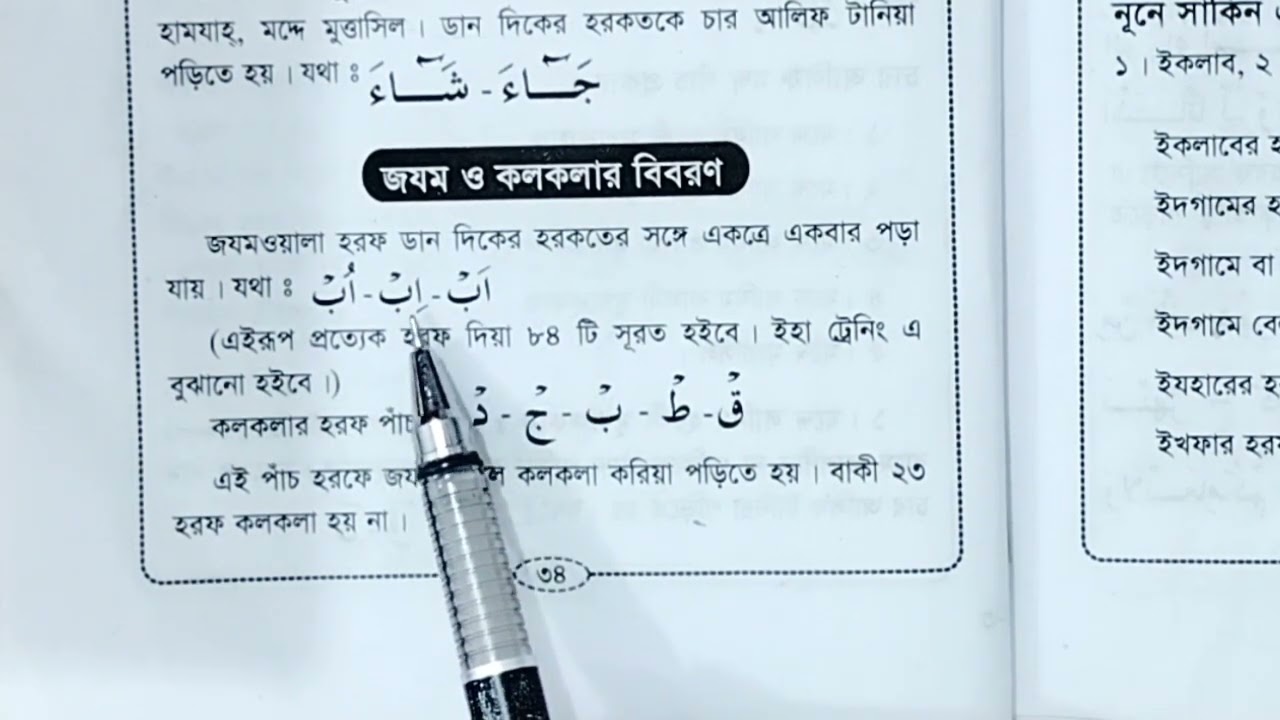 হামযাহ্, মদ্দে মুত্তাসিল। ডান দিকের হরকতকে চার আলিফ টানিয়া
পড়িতে হয়। যথা ঃ جَــآءَ - شَــآءَ
জযম ও কলকলার বিবরণ
জযমওয়ালা হরফ ডান দিকের হরকতের সঙ্গে একত্রে একবার পড়া
যায়। যথা ঃ اَبْ - اِبْ - اُبْ
(এইরূপ প্রত্যেক হরফ দিয়া ৮৪ টি সূরত হইবে। ইহা ট্রেনিং এ
বুঝানো হইবে।)
কলকলার হরফ পাঁচ قْ - طْ - بْ - جْ - دْ
এই পাঁচ হরফে কলকলা করিয়া পড়িতে হয়। বাকী ২৩
হরফ কলকলা হয় না।
৩৪
নূনে সাকিন
১। ইকলাব, ২
ইকলাবের
ইদগামের
ইদগামে বা
ইদগামে
ইযহারের
ইখফার